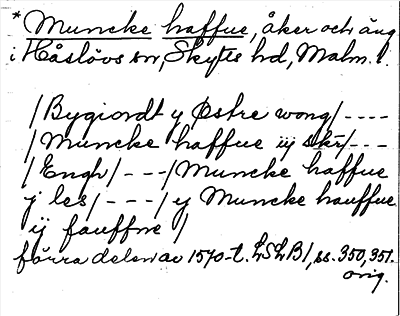 * Muncke haffue, åker och äng
i Håslövs sn, Skytts hd, Malm. l.
/Bygiordt y Østre wong/----
/Muncke haffue iij skr/---
/Engh/---/Muncke haffue
j les/---/y Muncke hauffue
ij fauffne/
förra delen av 1570-t. LSLB/, ss. 350, 351.
orig.